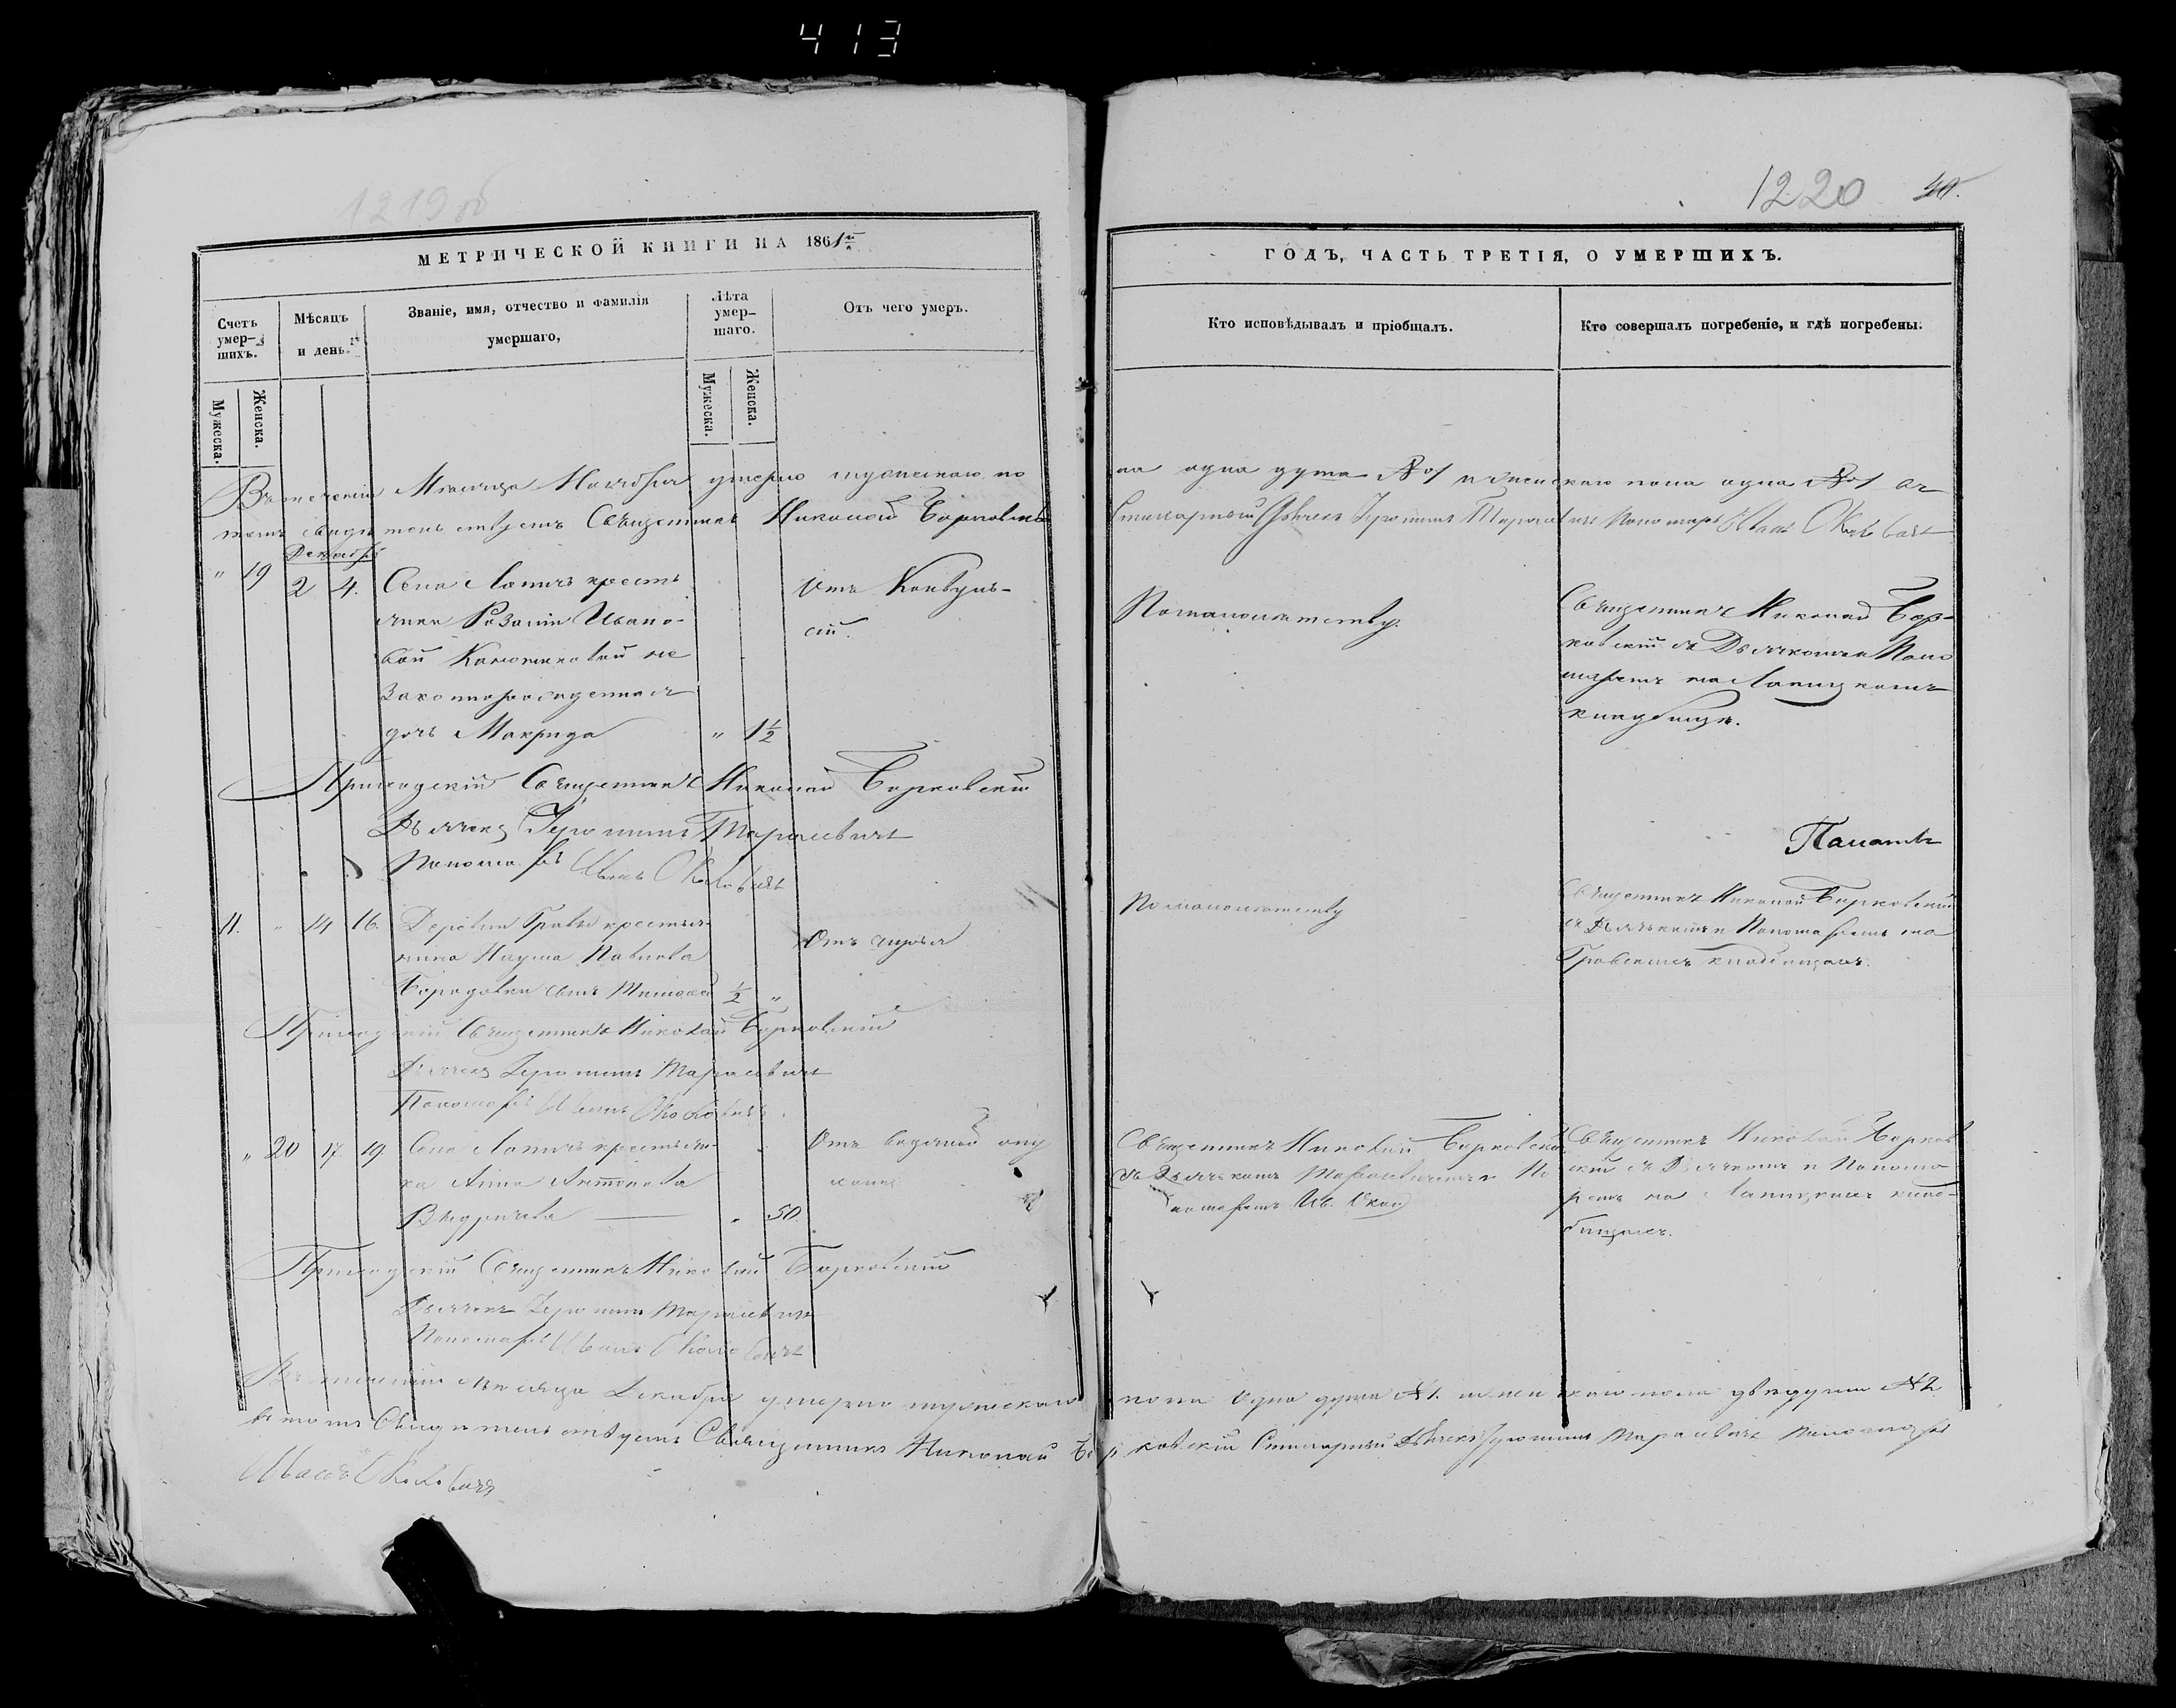 413
1219об
1220
МЕТРИЧЕСКОЙ КНИГИ НА 1861й
ГОДЪ, ЧАСТЬ ТРЕТІЯ, О УМЕРШИХЪ.
Счетъ умер-шихъ.
Мѣсяцъ и день.
Званіе, имя, отчество и фамилія
умершаго,
Лѣта умер-шаго.
Отъ чего умеръ.
Кто исповѣдывалъ и пріобщалъ.
Кто совершалъ погребеніе, и гдѣ погребены.
Мужеска.
Женска.
Мужеска.
Женска.
Въ теченіи Мѣсяца Ноября умерло мужескаго по
ла одна душа №1 и женскаго пола одна №1 въ
томъ свидѣтельствуемъ Священникъ Николай Борковскій
Стихарный Дьячекъ Іеронимъ Тарасевичъ Пономарь Иванъ
Декабрь
" 19 2 4. Села Лапичъ кресть
янки Розаліи Ивано-
вой незаконнорожденная
дочь Макрида " 1½
Отъ Конвуль-
сій.
По малолѣтству.
Священникъ Николай Бор-
ковскій съ Дьячкомъ и Поно
маремъ на Лапицкомъ
кладбищѣ.
Приходскій Священникъ Николай Борковскій
Дьячекъ Іеронимъ Тарасевичъ
Пономарь Иванъ
11. " 14 16. Деревни Гравы крестья-
нина Наума Павлова
Бородовки сынъ ½ "
По малолѣтству
Священникъ Николай Борковскій
съ Дьячкомъ и Пономаремъ на
Гравскомъ кладбищѣ.
Приходскій Священникъ Николай Борковскій
Дьячекъ Іеронимъ Тарасевичъ
Пономарь Иванъ
" 20 17. 19. Села Лапичъ крестьян-
ка Анна Антонова
" 50.
Отъ водяной опу
холи
Священникъ Николай Борковскій
съ Дьячкомъ Тарасевичемъ и По
номаремъ Ив.
Священникъ Николай Борков
скій съ Дьячкомъ и Понома
ремъ на Лапицкомъ клад-
бищѣ.
Приходскій Священникъ Николай Борковскій
Дьячекъ Іеронимъ Тарасевичъ
Пономарь Иванъ
Въ теченіи Мѣсяца Декабря умерло мужескаго пола одна душа №1. женскаго пола двѣ души №2
въ томъ свидѣтельствуемъ Священникъ Николай Борковскій Стихарный Дьячекъ Іеронимъ Тарасевичъ Пономарь
Иванъ